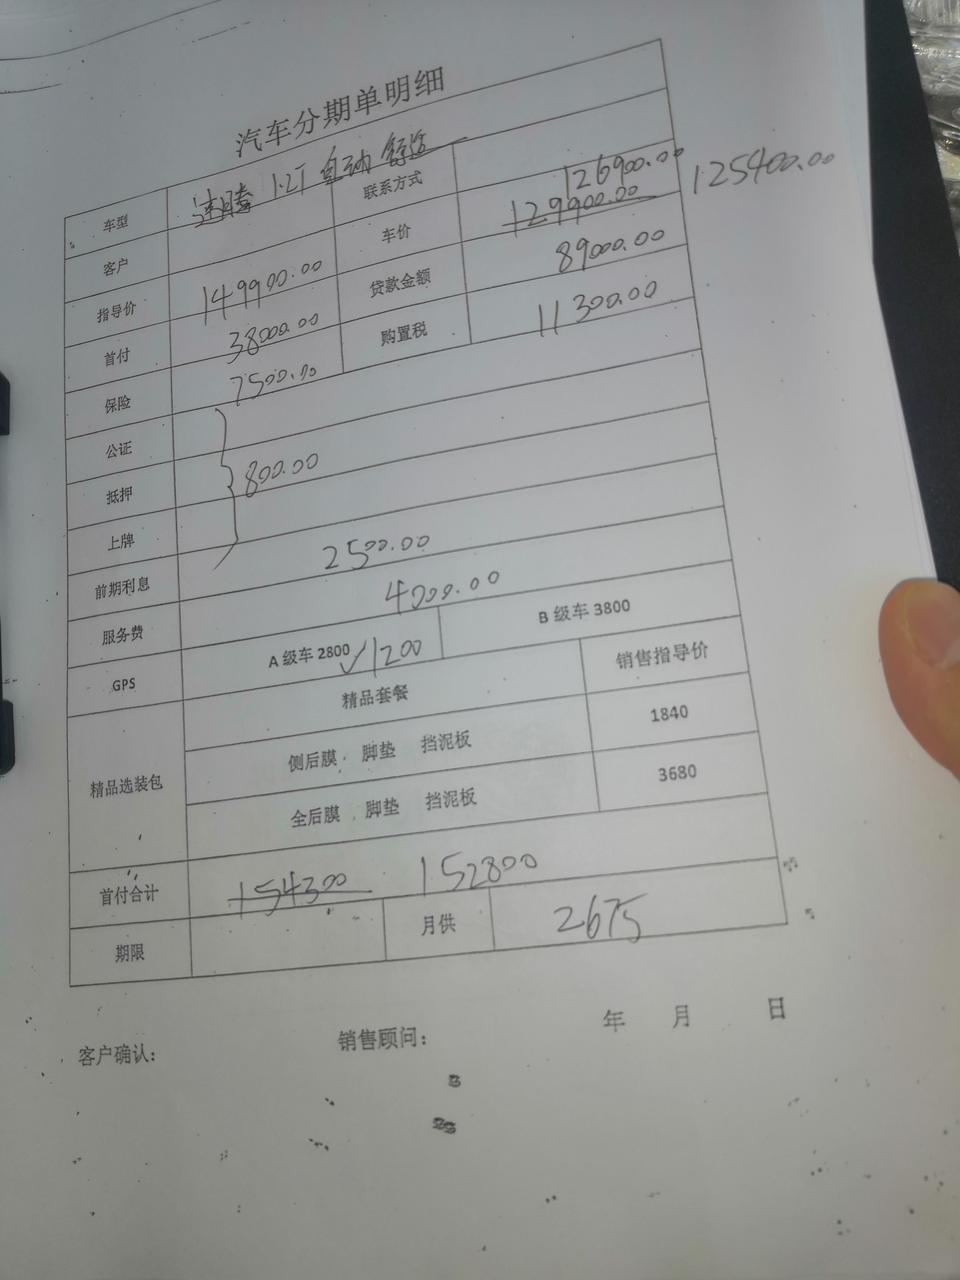 汽车分期单明细
车型 速腾 1.2T 自动 舒适
客户 联系方式
126900.00 125400.00
指导价 149900.00 车价 129900.00
首付 38000.00 贷款金额 89000.00
保险 7500.00 购置税 11300.00
公证
抵押 800.00
上牌
前期利息 2500.00
服务费 4000.00
GPS A 级车 2800 1200 B 级车 3800
精品选装包 精品套餐 销售指导价
侧后膜 脚垫 挡泥板 1840
全后膜 脚垫 挡泥板 3680
首付合计 154300 152800
期限 月供 2675
客户确认: 销售顾问: 年 月 日